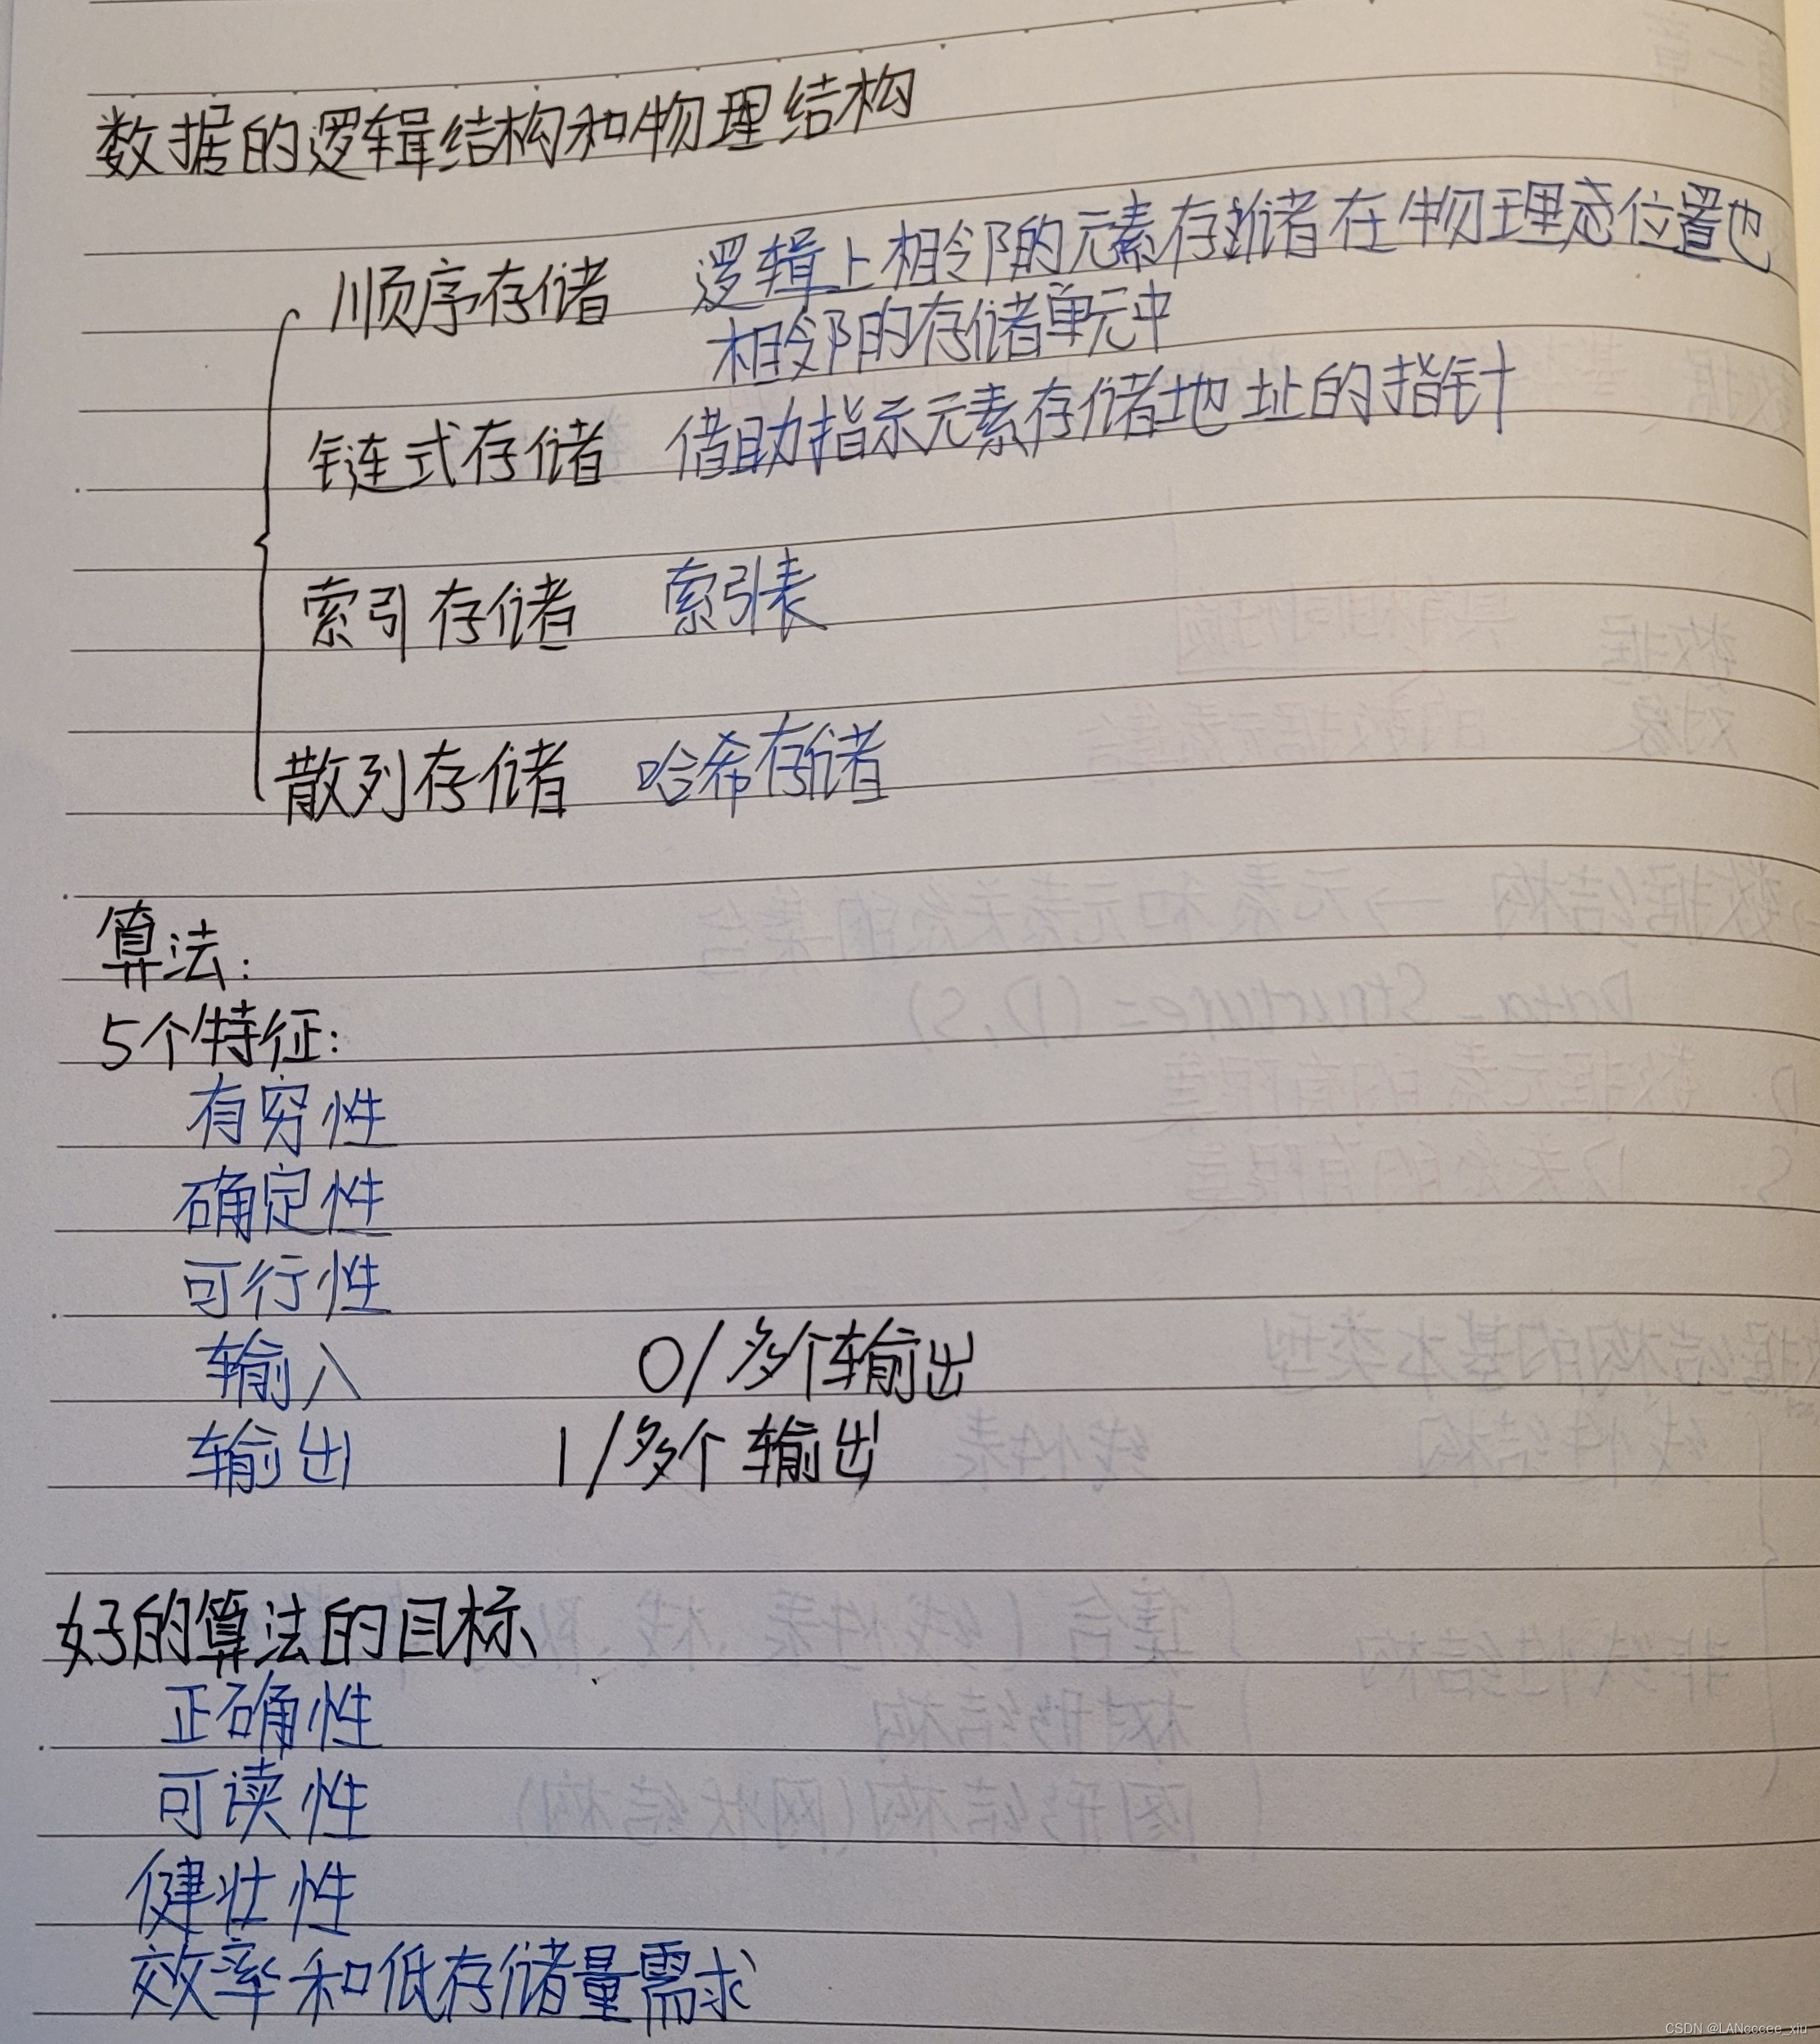 数据的逻辑结构和物理结构
顺序存储 逻辑上相邻的元素存储在物理位置也
相邻的存储单元中
链式存储 借助指示元素存储地址的指针
索引存储 索引表
散列存储 哈希存储
算法:
5个特征:
有穷性
确定性
可行性
输入 0/多个输出
输出 1/多个输出
好的算法的目标
正确性
可读性
健壮性
效率和低存储量需求
CSDN @LANccccee_xiu